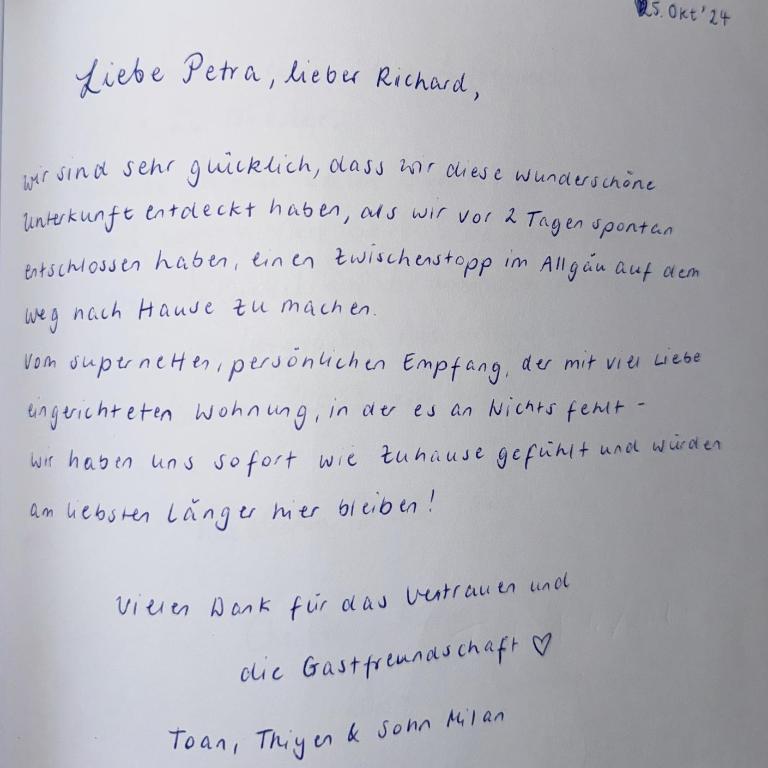 25. Okt '24
Liebe Petra, lieber Richard,
wir sind sehr glücklich, dass wir diese wunderschöne
Unterkunft entdeckt haben, als wir vor 2 Tagen spontan
entschlossen haben, einen Zwischenstopp im Allgäu auf dem
Weg nach Hause zu machen.
Vom supernetten, persönlichen Empfang, der mit viel Liebe
eingerichteten Wohnung, in der es an Nichts fehlt -
wir haben uns sofort wie Zuhause gefühlt und würden
am liebsten länger hier bleiben!
Vielen Dank für das Vertrauen und
die Gastfreundschaft ♡
Toan, Thiyen & Sohn Milan